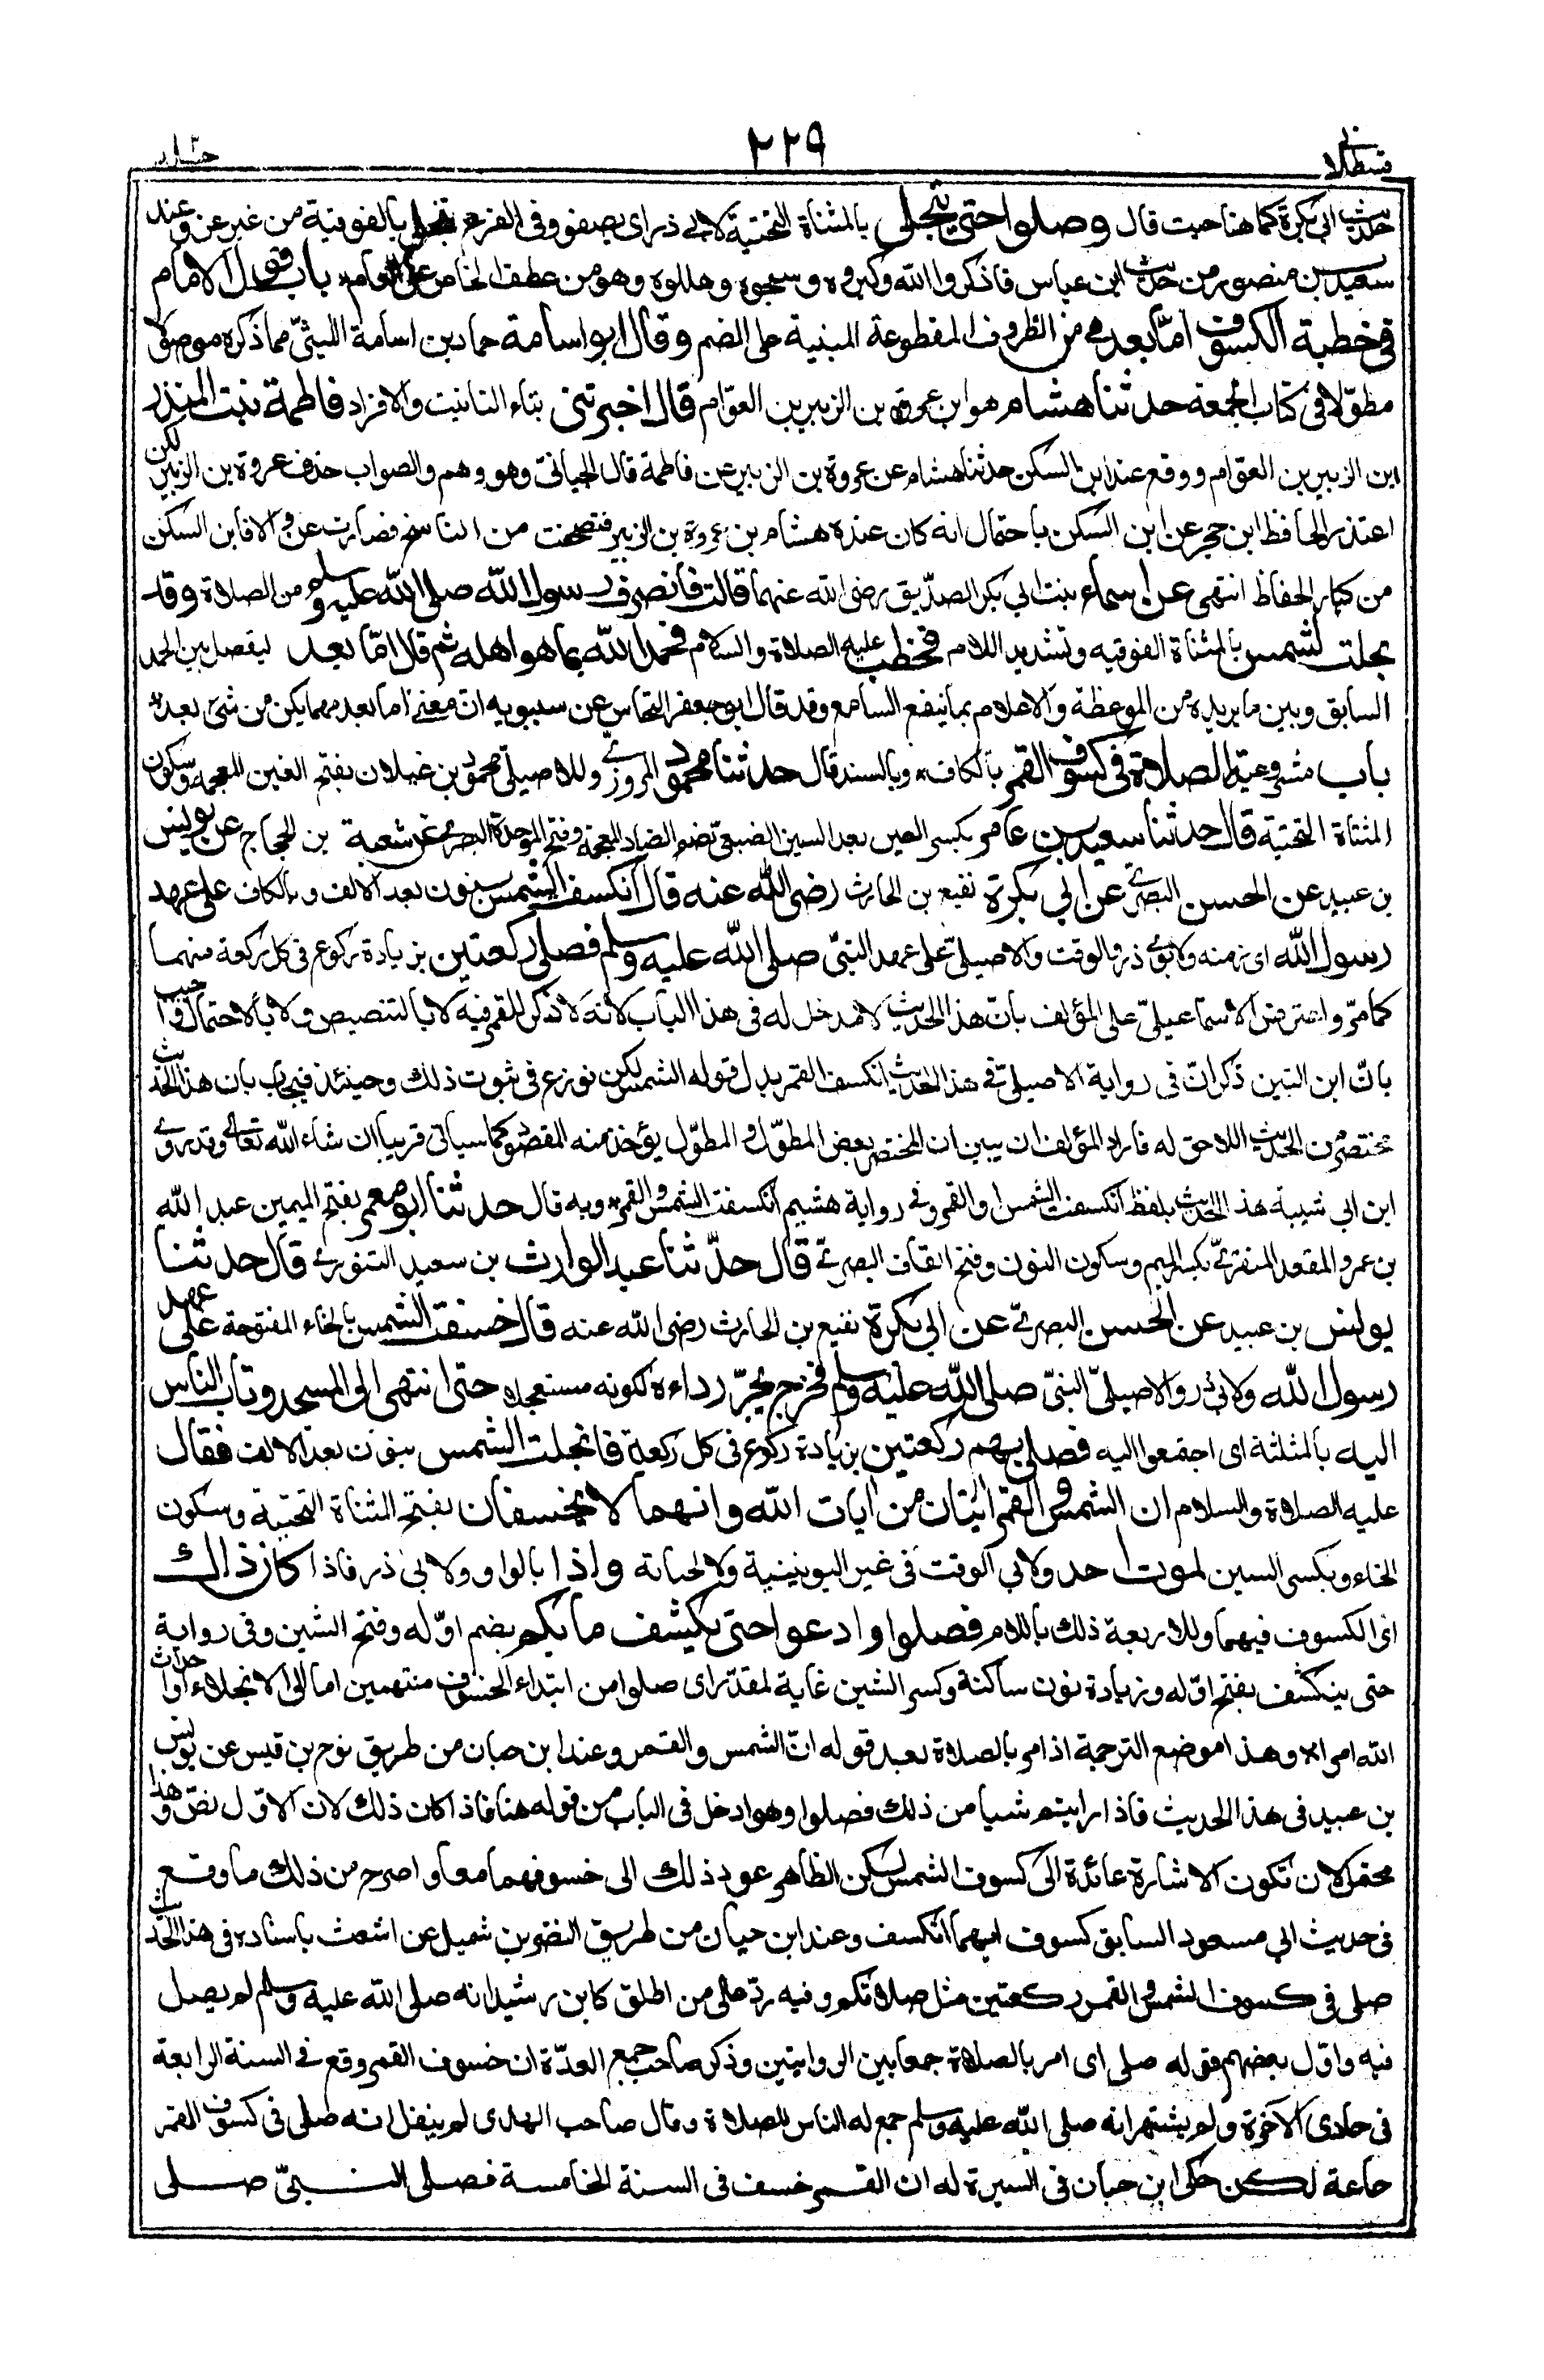 قسطلانى
٢٢٩
جلد ٢
حديث ابى بكرة كما هنا حيث قال وصلوا حتى ينجلى بالمثناة التحتية لابى ذر اى يصفو وفى الفرع تنجلى بالفوقية من غير عزو وعند
سعيد بن منصور من حديث ابن عباس فاذكروا الله وكبروه وسبحوه وهللوه وهو من عطف الخاص على العام * باب قول الامام
فى خطبة الكسوف امّا بعد هى من الظروف المقطوعة المبنية على الضم وقال ابو اسامة حماد بن اسامة الليثىّ مما ذكره موصولا
مطوّلا فى كتاب الجمعة حدثنا هشام هو ابن عروة بن الزبير بن العوّام قال اخبرتنى بتاء التانيث والافراد فاطمة بنت المنذر
ابن الزبير بن العوّام ووقع عند ابن السكن حدثنا هشام عن عروة بن الزبير عن فاطمة قال الجيانىّ وهو وهم والصواب حذف عروة بن الزبير لكن
اعتذر الحافظ ابن حجر عن ابن السكن باحتمال انه كان عنده هشام بن عروة بن الزبير فتصحفت من الناسخ فصارت عن والا فابن السكن
من كبار الحفاظ انتهى عن اسماء بنت ابى بكر الصدّيق رضى الله عنهما قالت فانصرف رسول الله صلى الله عليه وسلم من الصلاة وقد
تجلت الشمس بالمثناة الفوقيه وتشديد اللام فخطب عليه الصلاة والسلام فحمد الله بما هو اهله ثم قال امّا بعد ليفصل بين الحمد
السابق وبين ما يريده من الموعظة والاعلام بما ينفع السامع وقد قال ابو جعفر النحاس عن سيبويه ان معنى اما بعد مهما يكن من شئ بعد *
باب مشروعية الصلاة فى كسوف القمر بالكاف * وبالسند قال حدثنا محمود المروزىّ وللاصيلى محمود بن غيلان بفتح الغين المعجمة وسكون
المثناة التحتية قال حدثنا سعيد بن عامر بكسر العين بعد السين الضبعىّ بضم الضاد المعجمة وفتح الموحدة البصرى عن شعبة بن الحجاج عن يونس
بن عبيد عن الحسن البصرىّ عن ابى بكرة نفيع بن الحارث رضى الله عنه قال انكسفت الشمس بنون بعد الالف وبالكاف على عهد
رسول الله اى زمنه ولابوى ذر والوقت والاصيلىّ على عهد النبىّ صلى الله عليه وسلم فصلى ركعتين بزيادة ركوع فى كل ركعة منهما
كما مرّ واعترض الاسماعيلىّ على المؤلف بانّ هذا الحديث لا مدخل له فى هذا الباب لانه لا ذكر للقمر فيه لا بالتنصيص ولا بالاحتمال واجيب
بانّ ابن التين ذكر انّ فى رواية الاصيلىّ فى هذا الحديث انكسف القمر بدل قوله الشمس لكن نوزع فى ثبوت ذلك وحينئذ فيجاب بان هذا الحديث
مختصر من الحديث اللاحق له فاراد المؤلف ان يبين ان المختصر بعض المطوّل والمطوّل يؤخذ منه المقصود كما سياتى قريبا ان شاء الله تعالى وقد روى
ابن ابى شيبة هذا الحديث بلفظ انكسفت الشمس او القمر وفى رواية هشيم انكسفت الشمس والقمر * وبه قال حدثنا ابو معمر بفتح الميمين عبد الله
بن عمرو المقعد المنقرىّ بكسر الميم وسكون النون وفتح القاف البصرىّ قال حدّثنا عبد الوارث بن سعيد التنورى قال حدثنا
يونس بن عبيد عن الحسن البصرىّ عن ابى بكرة نفيع بن الحارث رضى الله عنه قال خسفت الشمس بالخاء المفتوحة على عهد
رسول الله ولابى ذر والاصيلىّ النبىّ صلى الله عليه وسلم فخرج يجرّ رداءه لكونه مستعجلا حتى انتهى الى المسجد وثاب الناس
اليه بالمثلثة اى اجتمعوا اليه فصلى بهم ركعتين بزيادة ركوع فى كل ركعة فانجلت الشمس بنون بعد الالف فقال
عليه الصلاة والسلام ان الشمس والقمر ايتان من ايات الله وانهما لا يخسفان بفتح المثناة التحتية وسكون
الخاء وبكسر السين لموت احد ولابى الوقت فى غير اليونينية ولا لحياته واذا بالواو ولابى ذر فاذا كان ذاك
اى الكسوف فيهما وللاربعة ذلك باللام فصلوا وادعوا حتى يكشف ما بكم بضم اوّله وفتح الشين وفى رواية
حتى ينكشف بفتح اوّله وزيادة نون ساكنة وكسر الشين غاية لمقدّر اى صلوا من ابتداء الخسوف منتهين اما الى الانجلاء او احداث
الله امرا وهذا موضع الترجمة اذ امر بالصلاة بعد قوله انّ الشمس والقمر وعند ابن حبان من طريق نوح بن قيس عن يونس
بن عبيد فى هذا الحديث فاذا رايتم شيا من ذلك فصلوا وهو ادخل فى الباب من قوله هنا فاذا كان ذلك لان الاوّل نصّ وهذا
محتمل لان تكون الاشارة عائدة الى كسوف الشمس لكن الظاهر عود ذلك الى خسوفهما معا واصرح من ذلك ما وقع
فى حديث ابى مسعود السابق كسوف ايهما انكسف وعند ابن حبان من طريق النضر بن شميل عن اشعث باسناده فى هذا الحديث
صلى فى كسوف الشمس والقمر ركعتين مثل صلاتكم وفيه ردّ على من اطلق كابن رشيد انه صلى الله عليه وسلم لم يصل
فيه واوّل بعضهم قوله صلى اى امر بالصلاة جمعا بين الروايتين وذكر صاحب جمع العدّة ان خسوف القمر وقع فى السنة الرابعة
فى جمادى الآخرة ولم يشتهر انه صلى الله عليه وسلم جمع له الناس للصلاة وقال صاحب الهدى لم ينقل انه صلى فى كسوف القمر
جماعة لكن حكى ابن حبان فى السيرة له ان القمر خسف فى السنة الخامسة فصلى النبىّ صلى